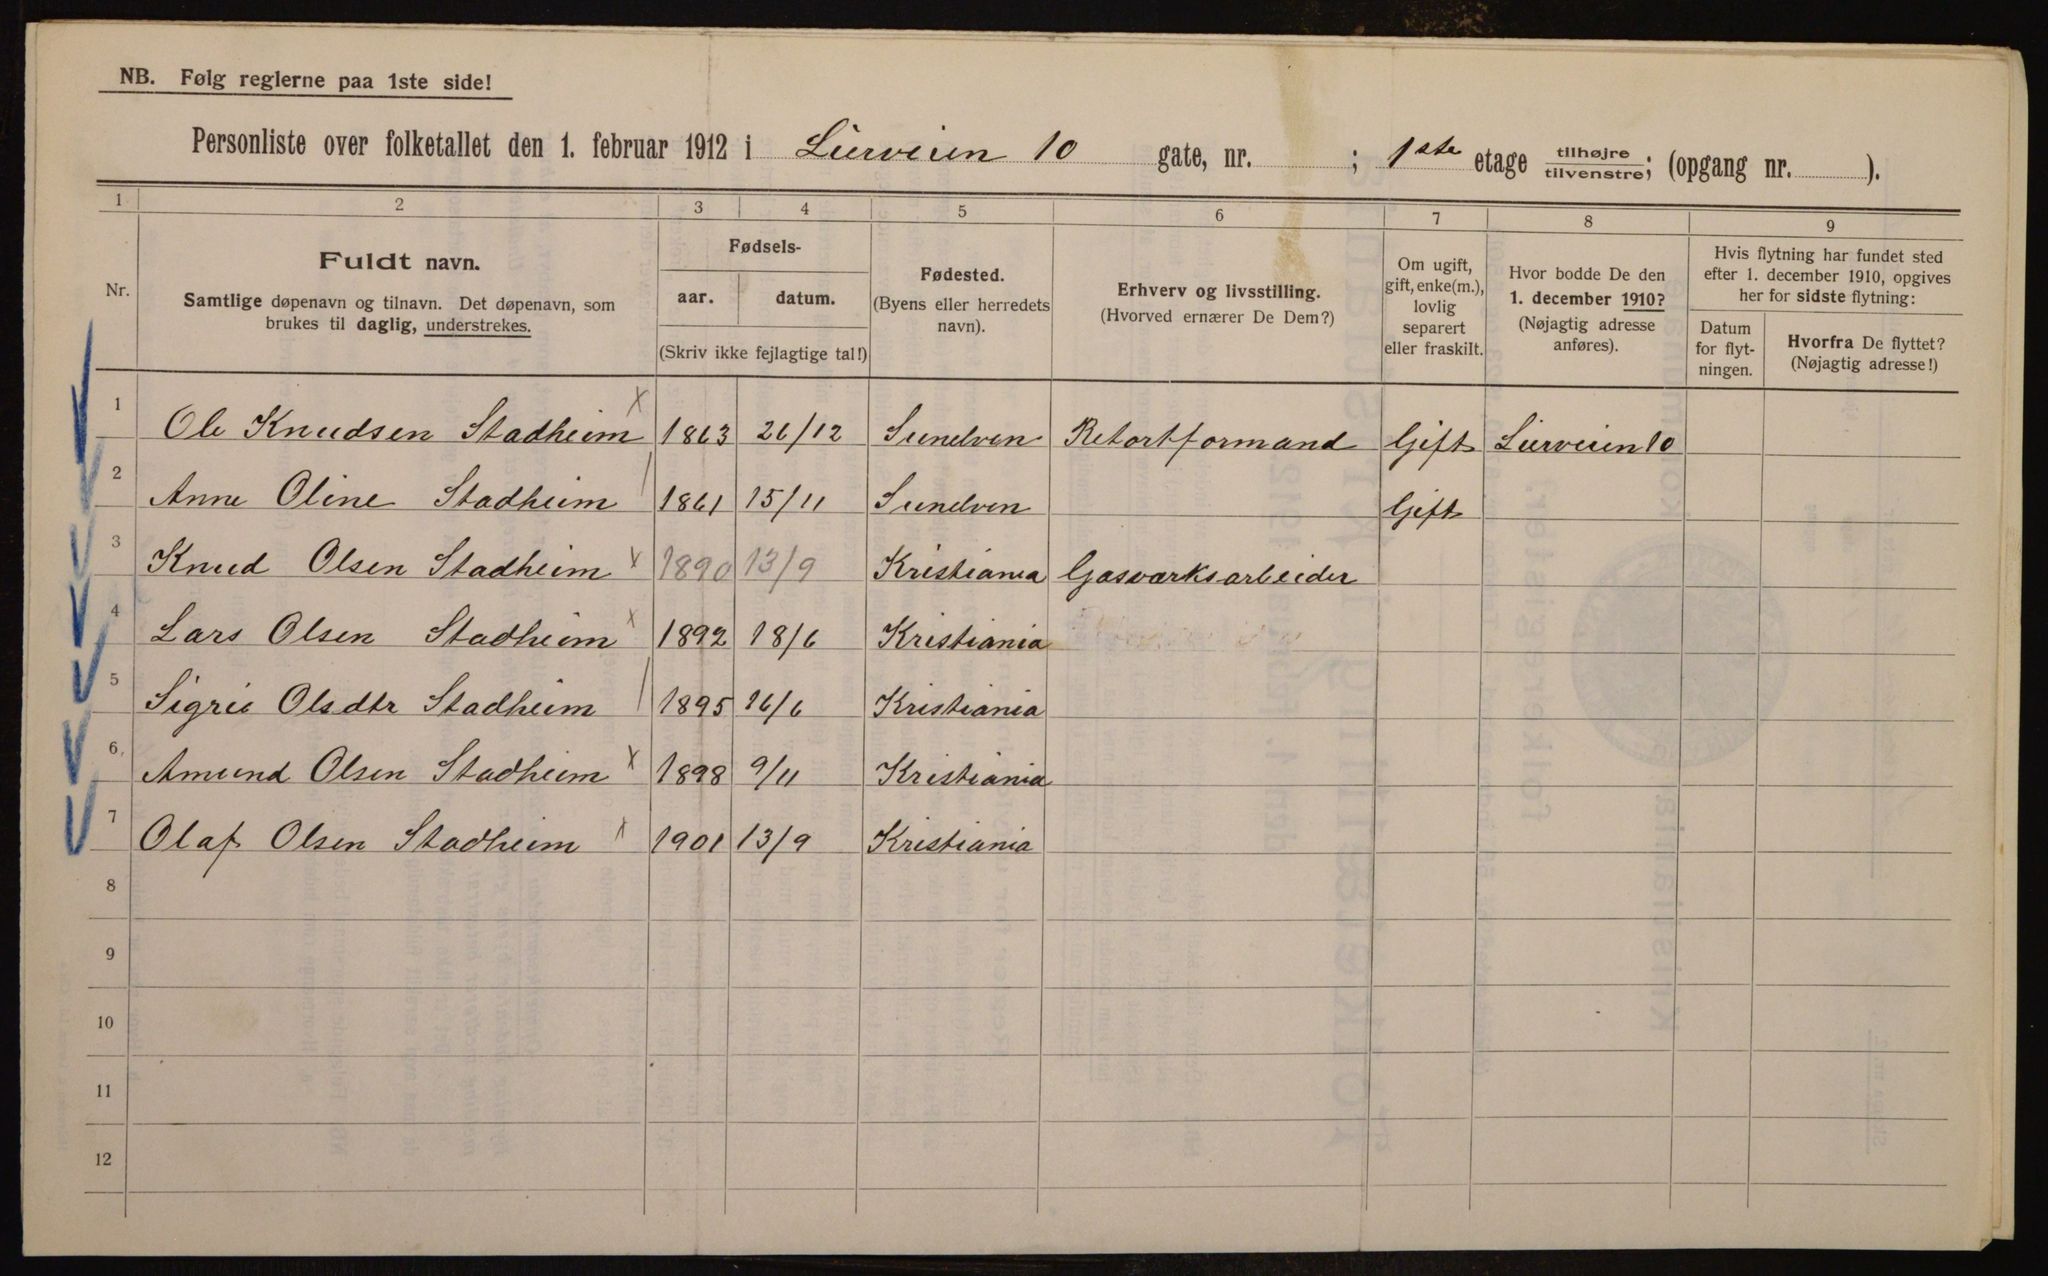 NB. Følg reglerne paa 1ste side!
Personliste over folketallet den 1. februar 1912 i Lierveien 10 gate, nr. ; 1ste etage tilhøjre/tilvenstre; (opgang nr. ).
1 2 3 4 5 6 7 8 9
Nr.
Fuldt navn.
Samtlige døpenavn og tilnavn. Det døpenavn, som
brukes til daglig, understrekes.
Fødsels-
aar. datum.
(Skriv ikke fejlagtige tal!)
Fødested.
(Byens eller herredets
navn).
Erhverv og livsstilling.
(Hvorved ernærer De Dem?)
Om ugift,
gift, enke(m.),
lovlig
separert
eller fraskilt.
Hvor bodde De den
1. december 1910?
(Nøjagtig adresse
anføres).
Hvis flytning har fundet sted
efter 1. december 1910, opgives
her for sidste flytning:
Datum
for flyt-
ningen.
Hvorfra De flyttet?
(Nøjagtig adresse!)
1 Ole Knudsen Stadheim x 1863 26/12 Sunelven Retortformand Gift Lierveien 10
2 Anne Oline Stadheim / 1861 15/11 Sunelven Gift
3 Knud Olsen Stadheim x 1890 13/9 Kristiania Gasværksarbeider
4 Lars Olsen Stadheim x 1892 18/6 Kristiania
5 Sigrid Olsdtr Stadheim / 1895 16/6 Kristiania
6 Amund Olsen Stadheim x 1898 9/11 Kristiania
7 Olaf Olsen Stadheim x 1901 13/9 Kristiania
8
9
10
11
12